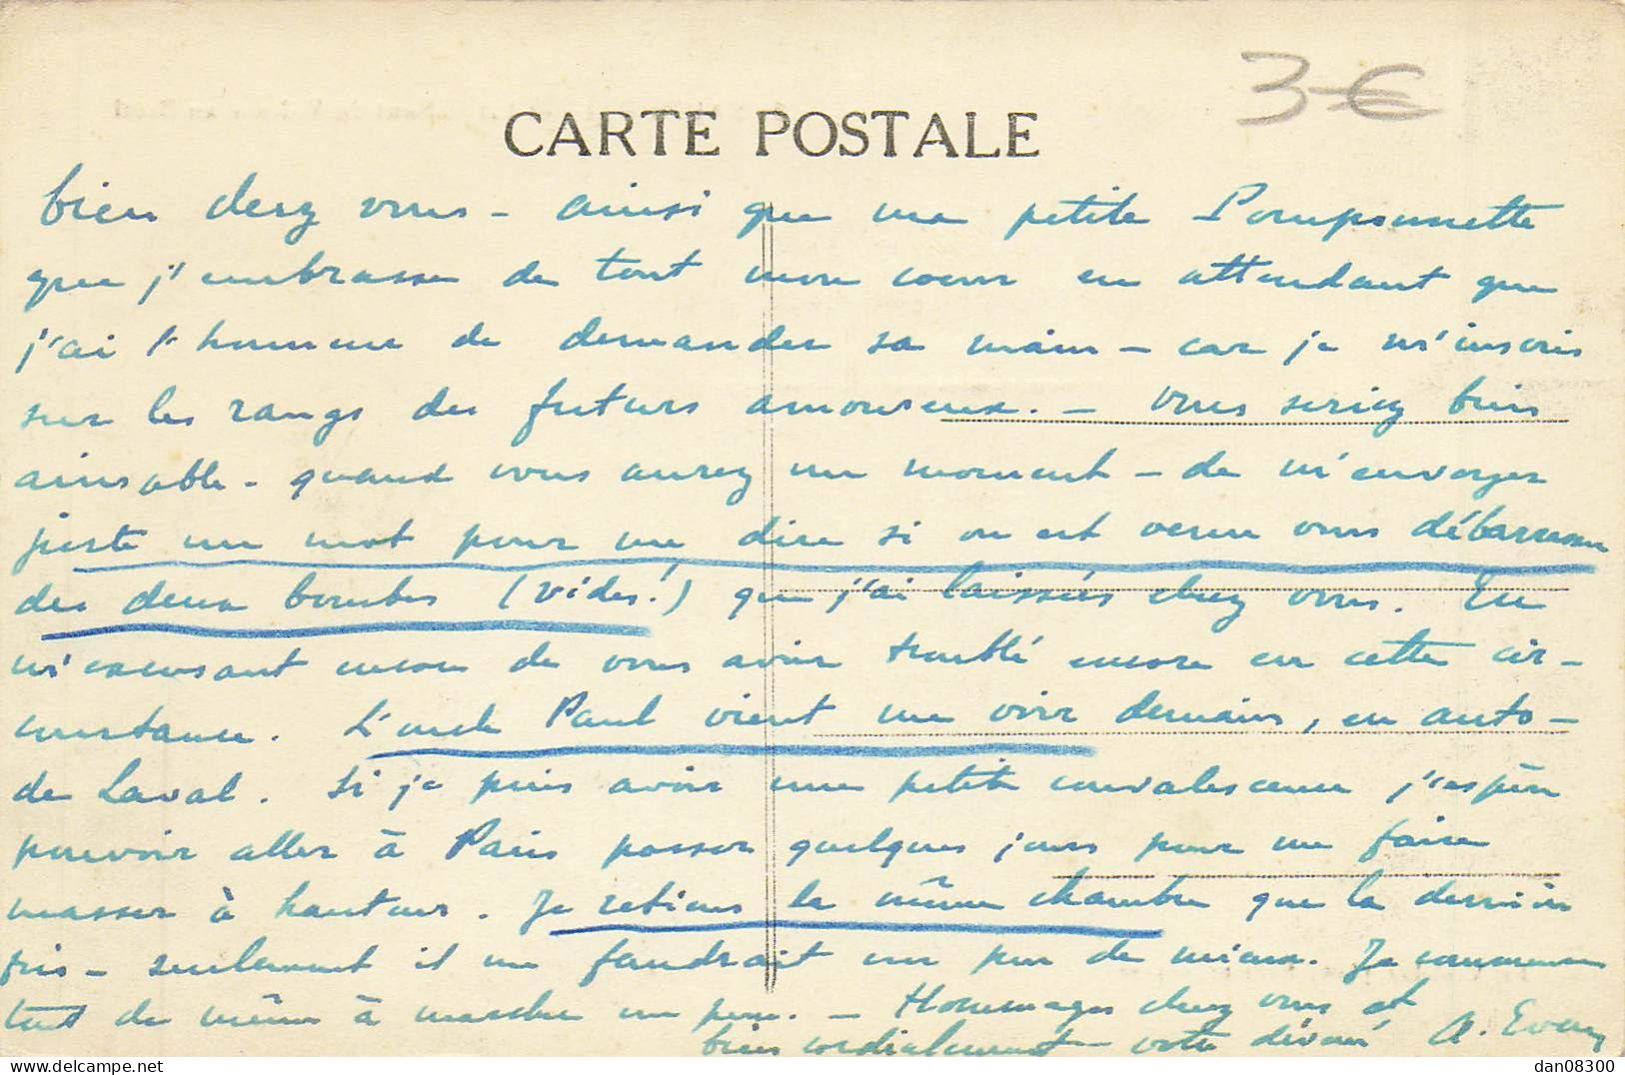 3 €
CARTE POSTALE
bien chez vous - ainsi que ma petite Pomponnette
que j'embrasse de tout mon coeur en attendant que
j'ai l'honneur de demander sa main - car je m'inscris
sur les rangs des futurs amoureux. - Vous seriez bien
aimable - quand vous aurez un moment - de m'envoyer
juste un mot pour me dire si on est venu vous débarrasser
des deux bombes (vides!) que j'ai laissées chez vous. En
m'excusant encore de vous avoir troublé encore en cette cir-
constance. L'oncle Paul vient me voir demain, en auto -
de Laval. Si je puis avoir une petite convalescence j'espère
pouvoir aller à Paris passer quelques jours pour me faire
masser à hauteur. Je retiens la même chambre que la dernière
fois - seulement il me faudrait un peu de mieux. Je commence
tout de même à marcher un peu. - Hommages chez vous et
bien cordialement votre dévoué A.
dan08300